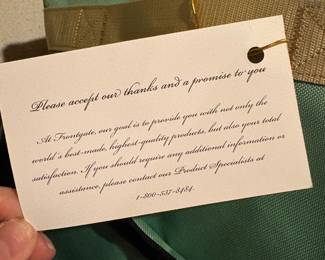 Please accept our thanks and a promise to you
At Frontgate, our goal is to provide you with not only the
world's best-made, highest-quality products, but also your total
satisfaction. If you should require any additional information or
assistance, please contact our Product Specialists at
1-800-537-8484.